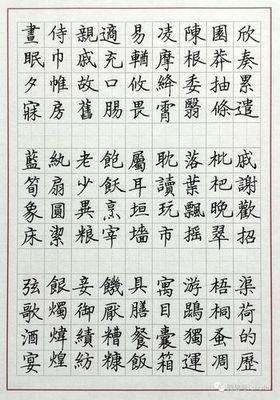 欣奏累遣 戚謝歡招 渠荷的歷
園莽抽條 枇杷晚翠 梧桐蚤凋
陳根委翳 落葉飄摇 游鵾獨運
凌摩絳霄 耽讀玩市 寓目囊箱
易輶攸畏 屬耳垣墻 具膳餐飯
適充口腸 飽飫烹宰 饑厭糟糠
親戚故舊 老少異粮 妾御績紡
侍巾帷房 紈扇圓潔 銀燭煒煌
晝眠夕寐 藍筍象床 弦歌酒宴